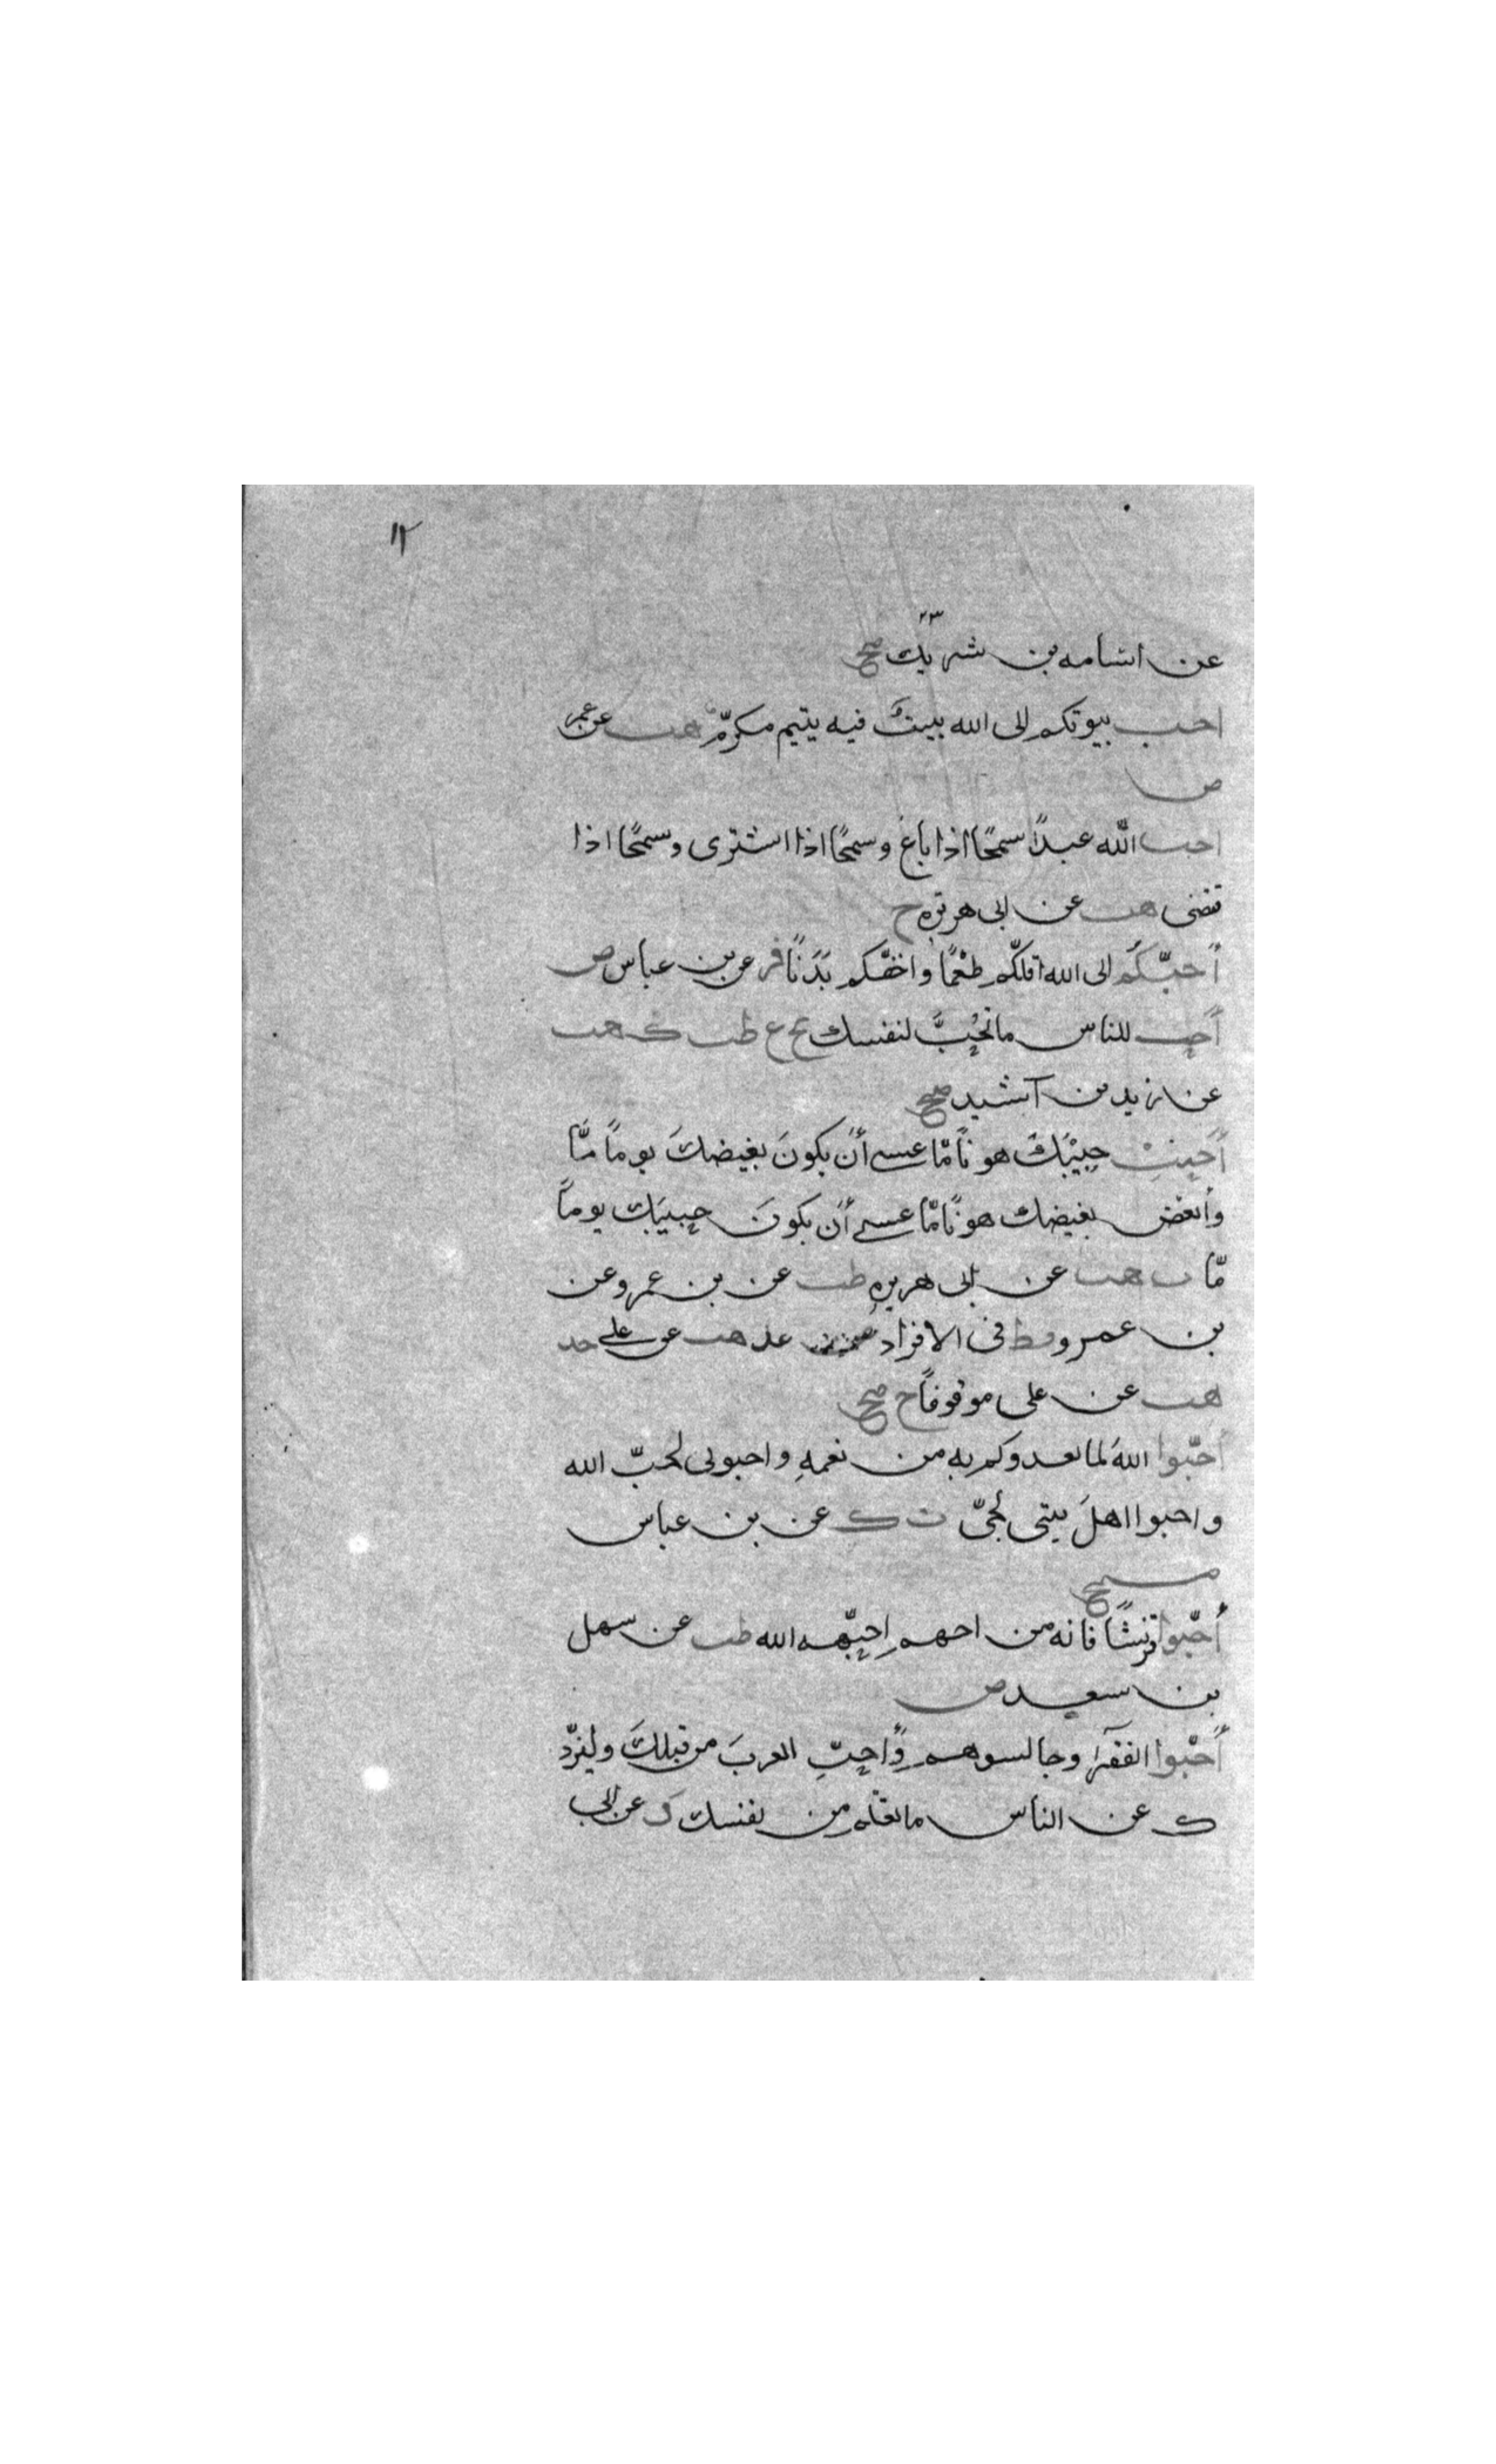 ١٢
عن اسامه بن شريك صح
احب بيوتكم الى الله بيت فيه يتيم مكرّم هب عن عمر
ض
احب الله عبدًا سمحًا اذا باع وسمحًا اذا اشترى وسمحًا اذا
قضى هب عن ابى هريره ح
أحبّكم الى الله اقلّكم طعْمًا واخفّكم بَدَنًا فر عن بن عباس ض
أحِب للناس ما تحِبُّ لنفسك تخ ع طب ك هب
عن زيد بن آسيد صح
أَحبِبْ حبِيْبَكَ هونًا مّا عسى أن يكونَ بغيضكَ يومًا مّا
وأبغض بغيضك هونًا مّا عسى أن يكونَ حبِيبَك يومًا
مّا ت هب عن ابى هريره طب عن بن عمر وعن
بن عمرو قط فى الافراد عد هب عن على خد
هب عن على موقوفًا ح صح
أحبّوا اللهَ لما يغدوكم به من نعمهِ واحبونى لحبّ الله
واحبوا اهلَ بيتى لحبّى ت ك عن بن عباس
صح
أحبّوا قريشًا فانه من احبهم احبّهم الله طب عن سهل
بن سعد ض
أحبّوا الفقرآء وجالسوهم وأحبِّ العربَ من قبلكَ وليردّ
ك عن الناس ما تعلم من نفسك ك عن ابى